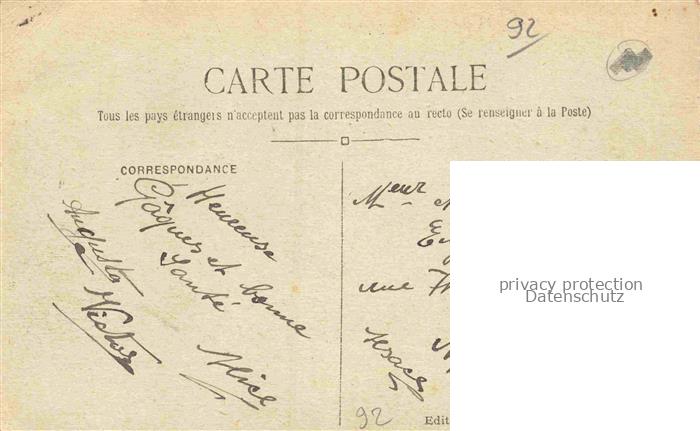 92
CARTE POSTALE
Tous les pays étrangers n'acceptent pas la correspondance au recto (Se renseigner à la Poste)
CORRESPONDANCE
Heureuse
Pâques et bonne
Santé
Alice
Augusta
Victor
Meur
rue
Alsace
92
Edit
privacy protection
Datenschutz